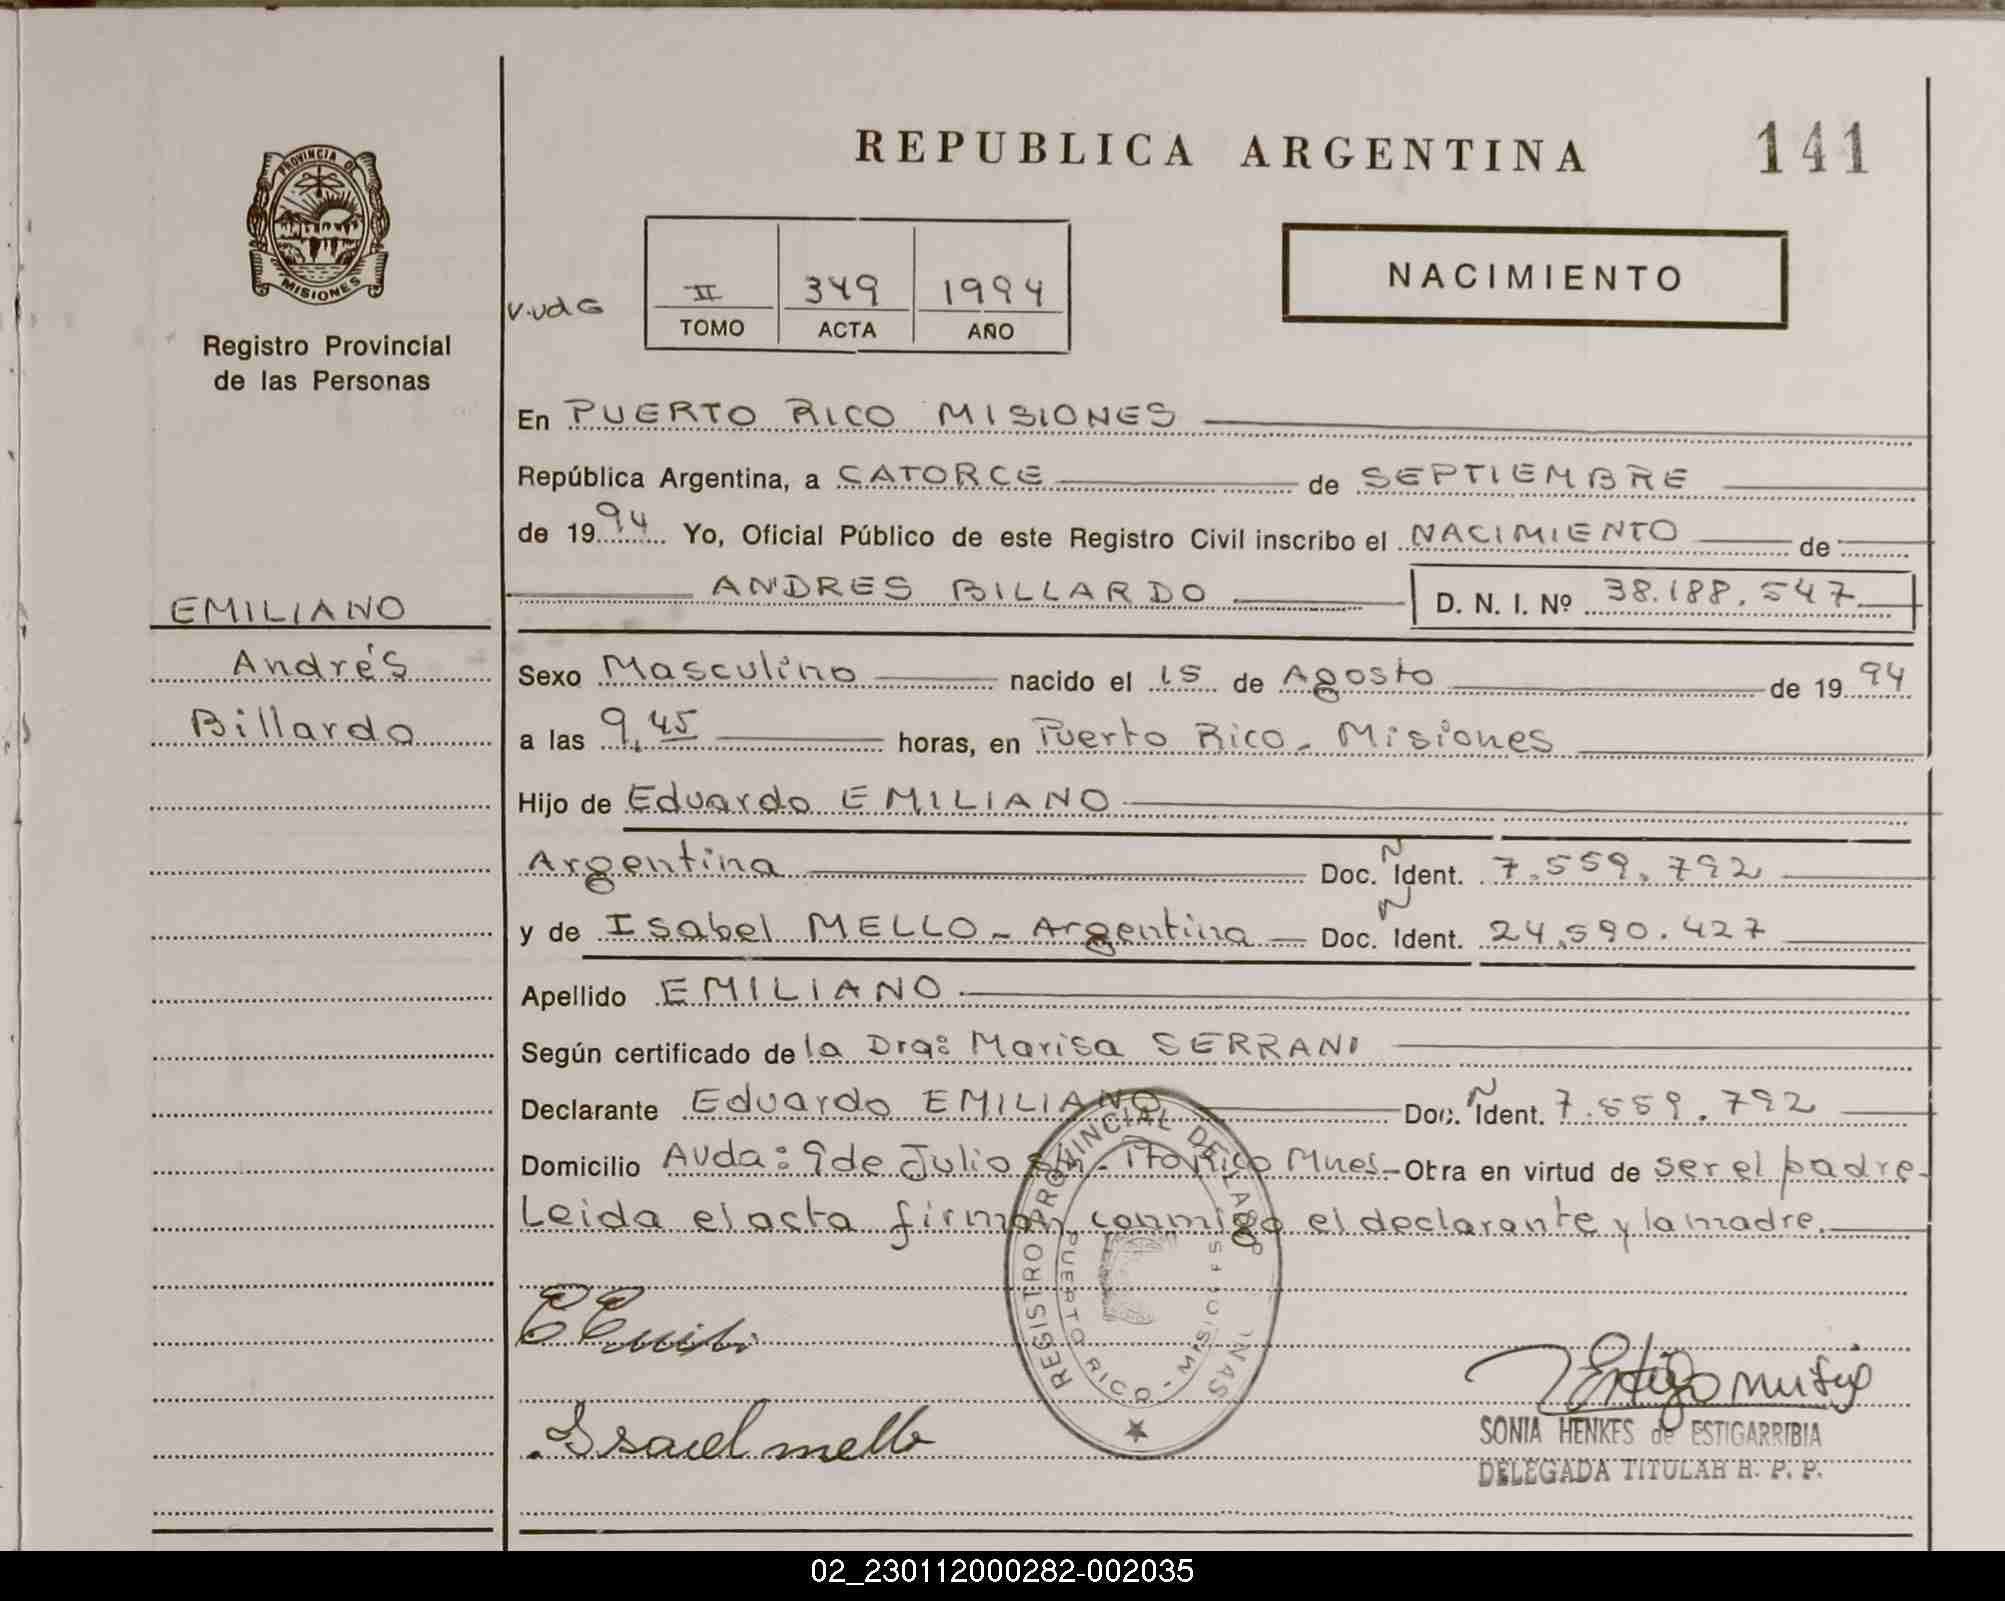 REPUBLICA ARGENTINA 141
PROVINCIA DE
MISIONES
Registro Provincial
de las Personas
NACIMIENTO
II 349 1994
TOMO ACTA AÑO
En PUERTO RICO MISIONES
República Argentina, a CATORCE de SEPTIEMBRE
de 1994 Yo, Oficial Público de este Registro Civil inscribo el NACIMIENTO de
ANDRES BILLARDO D. N. I. Nº 38.188.547
EMILIANO
Andrés
Billardo
Sexo Masculino nacido el 15 de Agosto de 1994
a las 9,45 horas, en Puerto Rico - Misiones
Hijo de Eduardo EMILIANO
Argentina Doc. N Ident. 7.559.792
y de Isabel MELLO - Argentina Doc. N Ident. 24.590.427
Apellido EMILIANO
Según certificado de la Dra: Marisa SERRANI
Declarante Eduardo EMILIANO Doc. N Ident. 7.559.792
Domicilio Avda: 9 de Julio s/n - Pto Rico Mnes - Obra en virtud de ser el padre.
Leida el acta firman conmigo el declarante y la madre.
REGISTRO PROVINCIAL DE LAS PERSONAS
PUERTO RICO - MISIONES
Isabel mello
SONIA HENKES de ESTIGARRIBIA
DELEGADA TITULAR R. P. P.
02_230112000282-002035